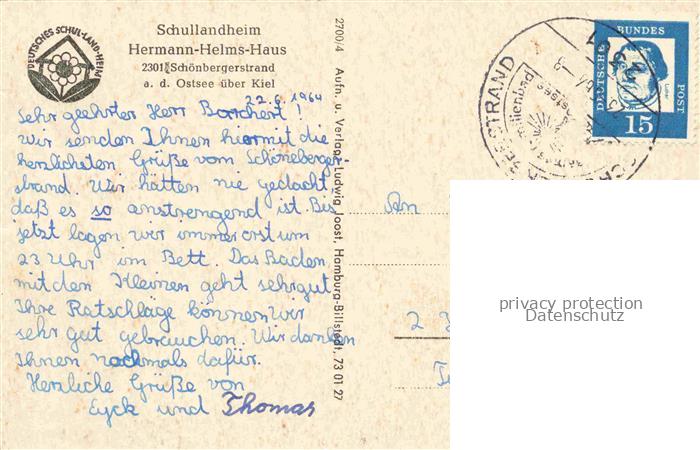 DEUTSCHES SCHUL-LAND-HEIM
Schullandheim
Hermann-Helms-Haus
2301 Schönbergerstrand
a. d. Ostsee über Kiel
22.6.1964
Sehr geehrter Herr Borchert!
Wir senden Ihnen hiermit die
herzlichsten Grüße vom Schöneberger-
strand. Wir hätten nie gedacht
daß es so anstrengend ist. Bis
jetzt lagen wir immer erst um
23 Uhr im Bett. Das Baden
mit den Kleinen geht sehr gut
Ihre Ratschläge können wir
sehr gut gebrauchen. Wir danken
Ihnen nochmals dafür.
Herzliche Grüße von
Eyck und Thomas
2700/4 Aufn. u. Verlag Ludwig Joost, Hamburg-Billstedt, 73 01 27
An
2
BUNDES
DEUTSCHE
POST
15
privacy protection
Datenschutz